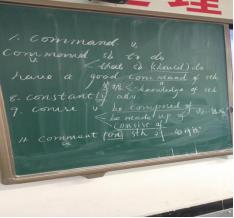 理
7. command v.
command sb to do
that sb (should) do
have a good command of sth
knowledge of sth
8. constantly adv
9. consise v. be composed of
be made up of
consise of
11. comment (on) sth